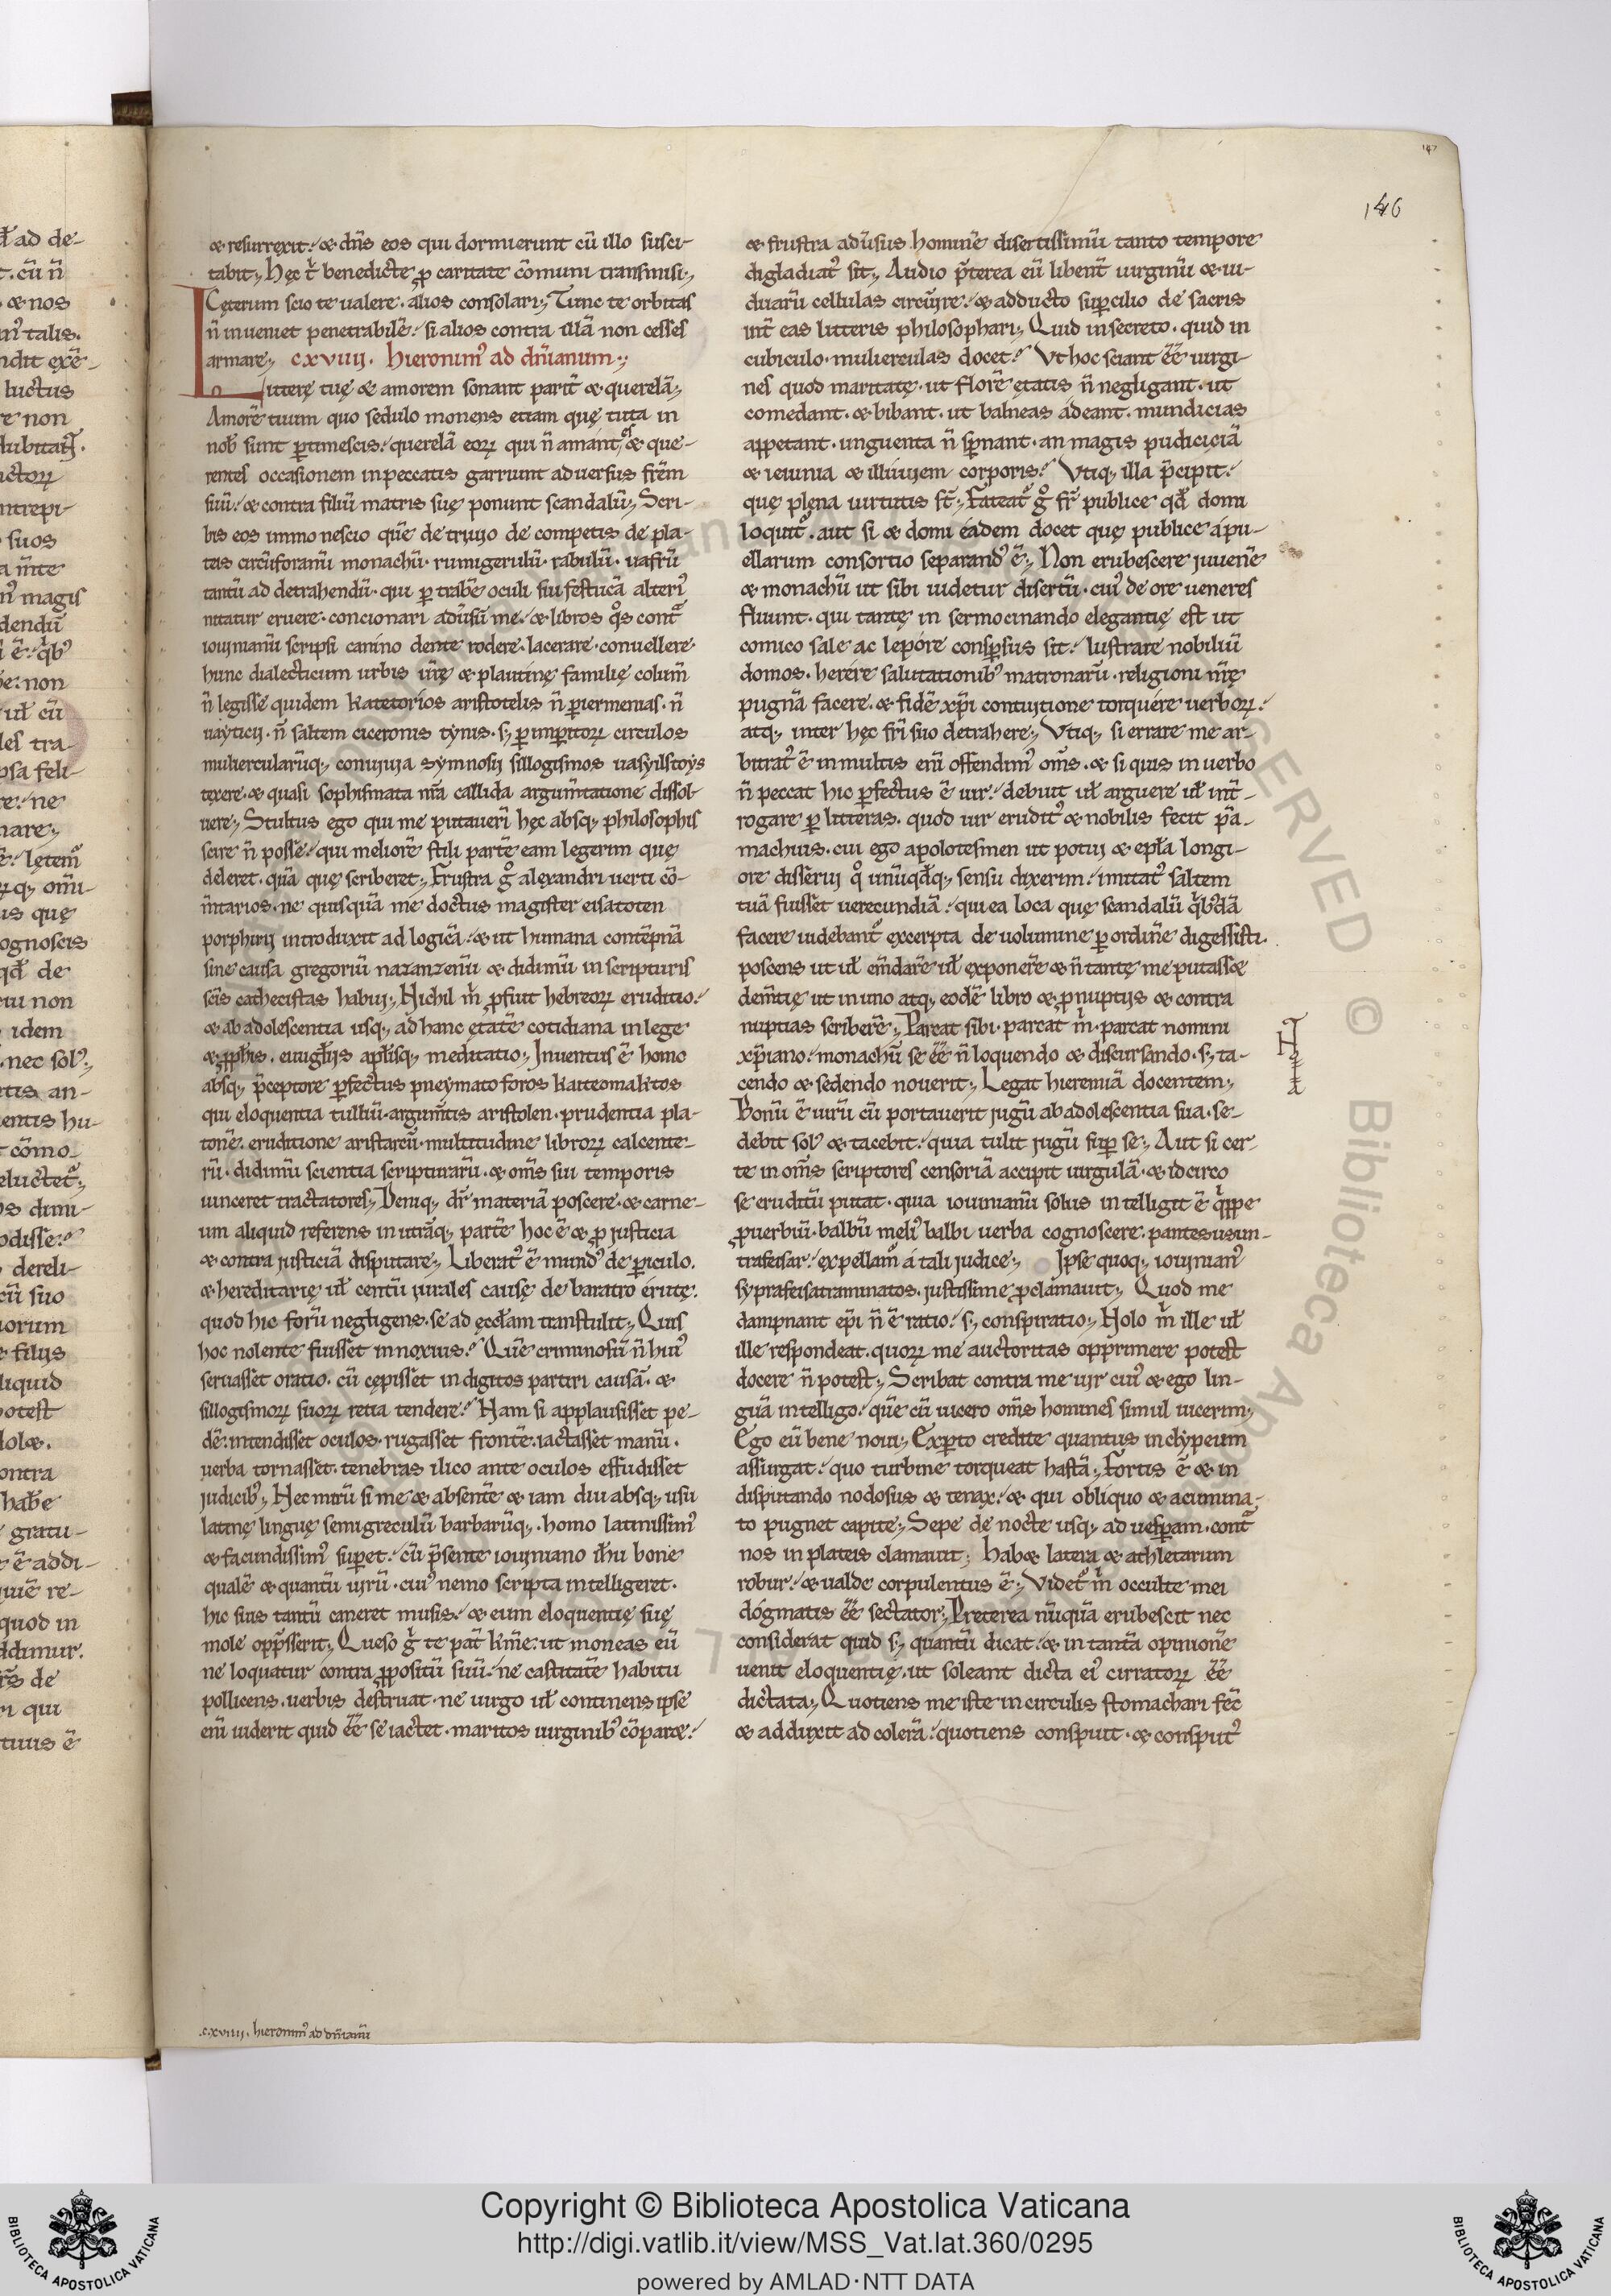 146
147
& resurrexit. & dn̄s eos qui dormierunt cū illo susci-
tabit., Hęc t̛ benedicte ꝓ caritate cōmuni transmisi.,
Cęterum scio te ualere. alios consolari., Tunc te orbitas
n̄ inueniet penetrabilē. si alios contra illā non cesses
armare., cxviiii. Hieronim᷒ ad dn̄ianum.,
Litterę tuę & amorem sonant parit̄ & querelā.,
Amorē tuum quo sedulo monens etiam quę tuta in
nob̄ sunt ꝑtimescis. querelā eoꝝ qui n̄ amant, & que-
rentes occasionem in peccatis garriunt aduersus frēm
suū. & contra filiū matris suę ponunt scandalū., Scri-
bis eos immo nescio quē de triuio de competis de pla-
teis circūforanū monachū. rumigerulū. rabulū. uafrū
tantū ad detrahendū. qui ꝑ trabē oculi sui festucā alteri᷒
nititur eruere. concionari adūsū me. & libros qͦs contᵃ
iouinianū scripsi canino dente rodere. lacerare. conuellere.
hunc dialecticum urbis ūrę & plautinę familię colum̄
n̄ legisse quidem katetorios aristotelis n̄ ꝑiermenias. n̄
uayticij. n̄ saltem ciceronis tynis. s; ꝑ imꝑitoꝝ circulos
muliercularūq; conuiuia symnosij sillogismos uasyilstoys
texere. & quasi sophismata nr̄a callida argum̄tatione dissol-
uere., Stultus ego qui me putauerī hęc absq; philosophis
scire n̄ posse. qui meliorē stili partē eam legerim quę
deleret. quā quę scriberet., Frustra gͦ alexandri uerti cō-
m̄tarios. ne quisquā me doctus magister eisatoten
porphirij introduxit ad logicā. & ut humana contēpnā
sine causa gregoriū nazanzenū & didimū in scripturis
scīs cathecistas habui., Nichil m̛ ꝓfuit hebreoꝝ eruditio.
& ab adolescentia usq; ad hanc ętatē cotidiana in lege
& ꝓph̄is. euūglijs apl̄isq; meditatio., Inuentus ē homo
absq; p̄ceptore ꝑfectus pneymatoforos kaiteomaktos
qui eloquentia tulliū. argum̄tis aristolen. prudentia pla-
tonē. eruditione aristarcū. multitudine libroꝝ calcente-
rū. didimū scientia scripturarū. & om̄s sui temporis
uinceret tractatores., Deniq; dr̄ materiā poscere. & carne-
um aliquid referens in utrāq; partē hoc ē & ꝓ justicia
& contra justiciā disputare., Liberat᷒ ē mund᷒ de ꝑiculo.
& hereditarię ul̄ centū uirales causę de baratro erutę.
quod hic forū negligens. se ad ęccl̄am transtulit., Quis
hoc nolente fuisset innoxius. Quē criminosū n̄ hui᷒
seruasset oratio. cū cępisset in digitos partiri causā. &
sillogismoꝝ suoꝝ retia tendere. Nam si applausisset pe-
dē. intendisset oculos. rugasset frontē. iactasset manū.
uerba tornasset. tenebras ilico ante oculos effudisset
judicib᷒., Nec mirū si me & absentē & iam diu absq; usu
latinę linguę semigreculū barbarūq;. homo latinissim᷒
& facundissim᷒ suꝑet. cū p̄sente iouiniano ih̄u bone
qualē & quantū uirū. cui᷒ nemo scripta intelligeret.
hic suis tantū caneret musis. & eum eloquentię suę
mole opp̄sserit., Queso g̛ te pat̄ km̄e. ut moneas eū
ne loquatur contra ꝓpositū suū. ne castitatē habitu
pollicens. uerbis destruat. ne uirgo ul̄ continens ipse
enī uiderit quid ēē se iactet. maritos uirginib᷒ cōparet.
& frustra adūsus hominē disertissimū tanto tempore
digladiat᷒ sit., Audio p̄terea eū libent̄ uirginū & ui-
duarū cellulas circūire. & adducto suꝑcilio de sacris
int̄ eas litteris philosophari., Quid in secreto. quid in
cubiculo. mulierculas docet. Vt hoc sciant ēē uirgi-
nes quod maritatę. ut florē ętatis n̄ negligant. ut
comedant. & bibant. ut balneas adeant. mundicias
appetant. unguenta n̄ sꝑnant. an magis pudiciciā
& ieiunia & illuuiem corporis. Vtiq; illa p̄cipit.
quę plena uirtutis st̄., Fateat᷑ gͦ fr̄ publice qd̄ domi
loquit᷑. aut si & domi eadem docet quę publice a pu-
ellarum consortio separand᷒ ē., Non erubescere juuenē
& monachū ut sibi uidetur disertū. cui᷒ de ore ueneres
fluunt. qui tantę in sermocinando elegantię est ut
comico sale ac lepore consꝑsus sit. lustrare nobiliū
domos. herere salutationib᷒ matronarū. religioni nr̄ę
pugnā facere. & fidē xp̄i contuitione torquere uerboꝝ.
atq; inter hęc frī suo detrahere., Vtiq; si errare me ar-
bitrat᷒ ē in multis enī offendim᷒ om̄s. & si quis in uerbo
n̄ peccat hic ꝑfectus ē uir. debuit ul̄ arguere ul̄ int̄-
rogare ꝑ litteras. quod uir erudit᷒ & nobilis fecit pā-
machius. cui ego apolotesmen ut potui & epl̄a longi-
ore disserui qͦ unūqd̄q; sensu dixerim. imitat᷒ saltem
tuā fuisset uerecundiā. qui ea loca quę scandalū q̛b᷒dā
facere uidebant᷑ excerpta de uolumine ꝑ ordinē digessisti.
poscens ut ul̄ em̄darē ul̄ exponerē & n̄ tantę me putasse
dem̄tię ut in uno atq; eodē libro & ꝓ nuptijs & contra
nuptias scriberē., Parcat sibi. parcat m̛. parcat nomini
xp̄iano. monachū se ēē n̄ loquendo & discursando. s; ta-
cendo & sedendo nouerit., Legat hieremiā docentem.,
Bonū ē uirū cū portauerit jugū ab adolescentia sua. se-
debit sol᷒ & tacebit. quia tulit jugū suꝑ se., Aut si cer-
te in om̄s scriptores censoriā accipit uirgulā. & idcirco
se eruditū putat. quia iouinianū solus intelligit ē q̛ppe
ꝓuerbiū. balbū meli᷒ balbi uerba cognoscere. pantesusun-
trafeisar. expellam᷑ a tali judice., Ipse quoq; iouinian᷒
syprafeisatraminatos. justissime ꝓclamauit., Quod me
dampnant ep̄i n̄ ē ratio. s; conspiratio., Nolo m̛ ille ul̄
ille respondeat. quoꝝ me auctoritas opprimere potest
docere n̄ potest., Scribat contra me uir cui᷒ & ego lin-
guā intelligo. quē cū uicero om̄s homines simul uicerim.,
Ego eū bene noui., Exꝑto credite quantus in clypeum
assurgat. quo turbine torqueat hastā., Fortis ē & in
disputando nodosus & tenax. & qui obliquo & acumina-
to pugnet capite., Sepe de nocte usq; ad uesꝑam. contᵃ
nos in plateis clamauit; habet latera & athletarum
robur. & ualde corpulentus ē., Videt᷑ m̛ occulte mei
dogmatis ēē sectator., Preterea nūquā erubescit nec
considerat quid s; quantū dicat. & in tantā opinionē
uenit eloquentię. ut soleant dicta ei᷒ cirratoꝝ ēē
dictata., Quotiens me iste in circulis stomachari fec̄
& adduxit ad colerā. quotiens conspuit. & consput᷒
.cxviiij. hieronim᷒ ad dn̄ianū
Copyright © Biblioteca Apostolica Vaticana
http://digi.vatlib.it/view/MSS_Vat.lat.360/0295
powered by AMLAD·NTT DATA
BIBLIOTECA APOSTOLICA VATICANA
BIBLIOTECA APOSTOLICA VATICANA